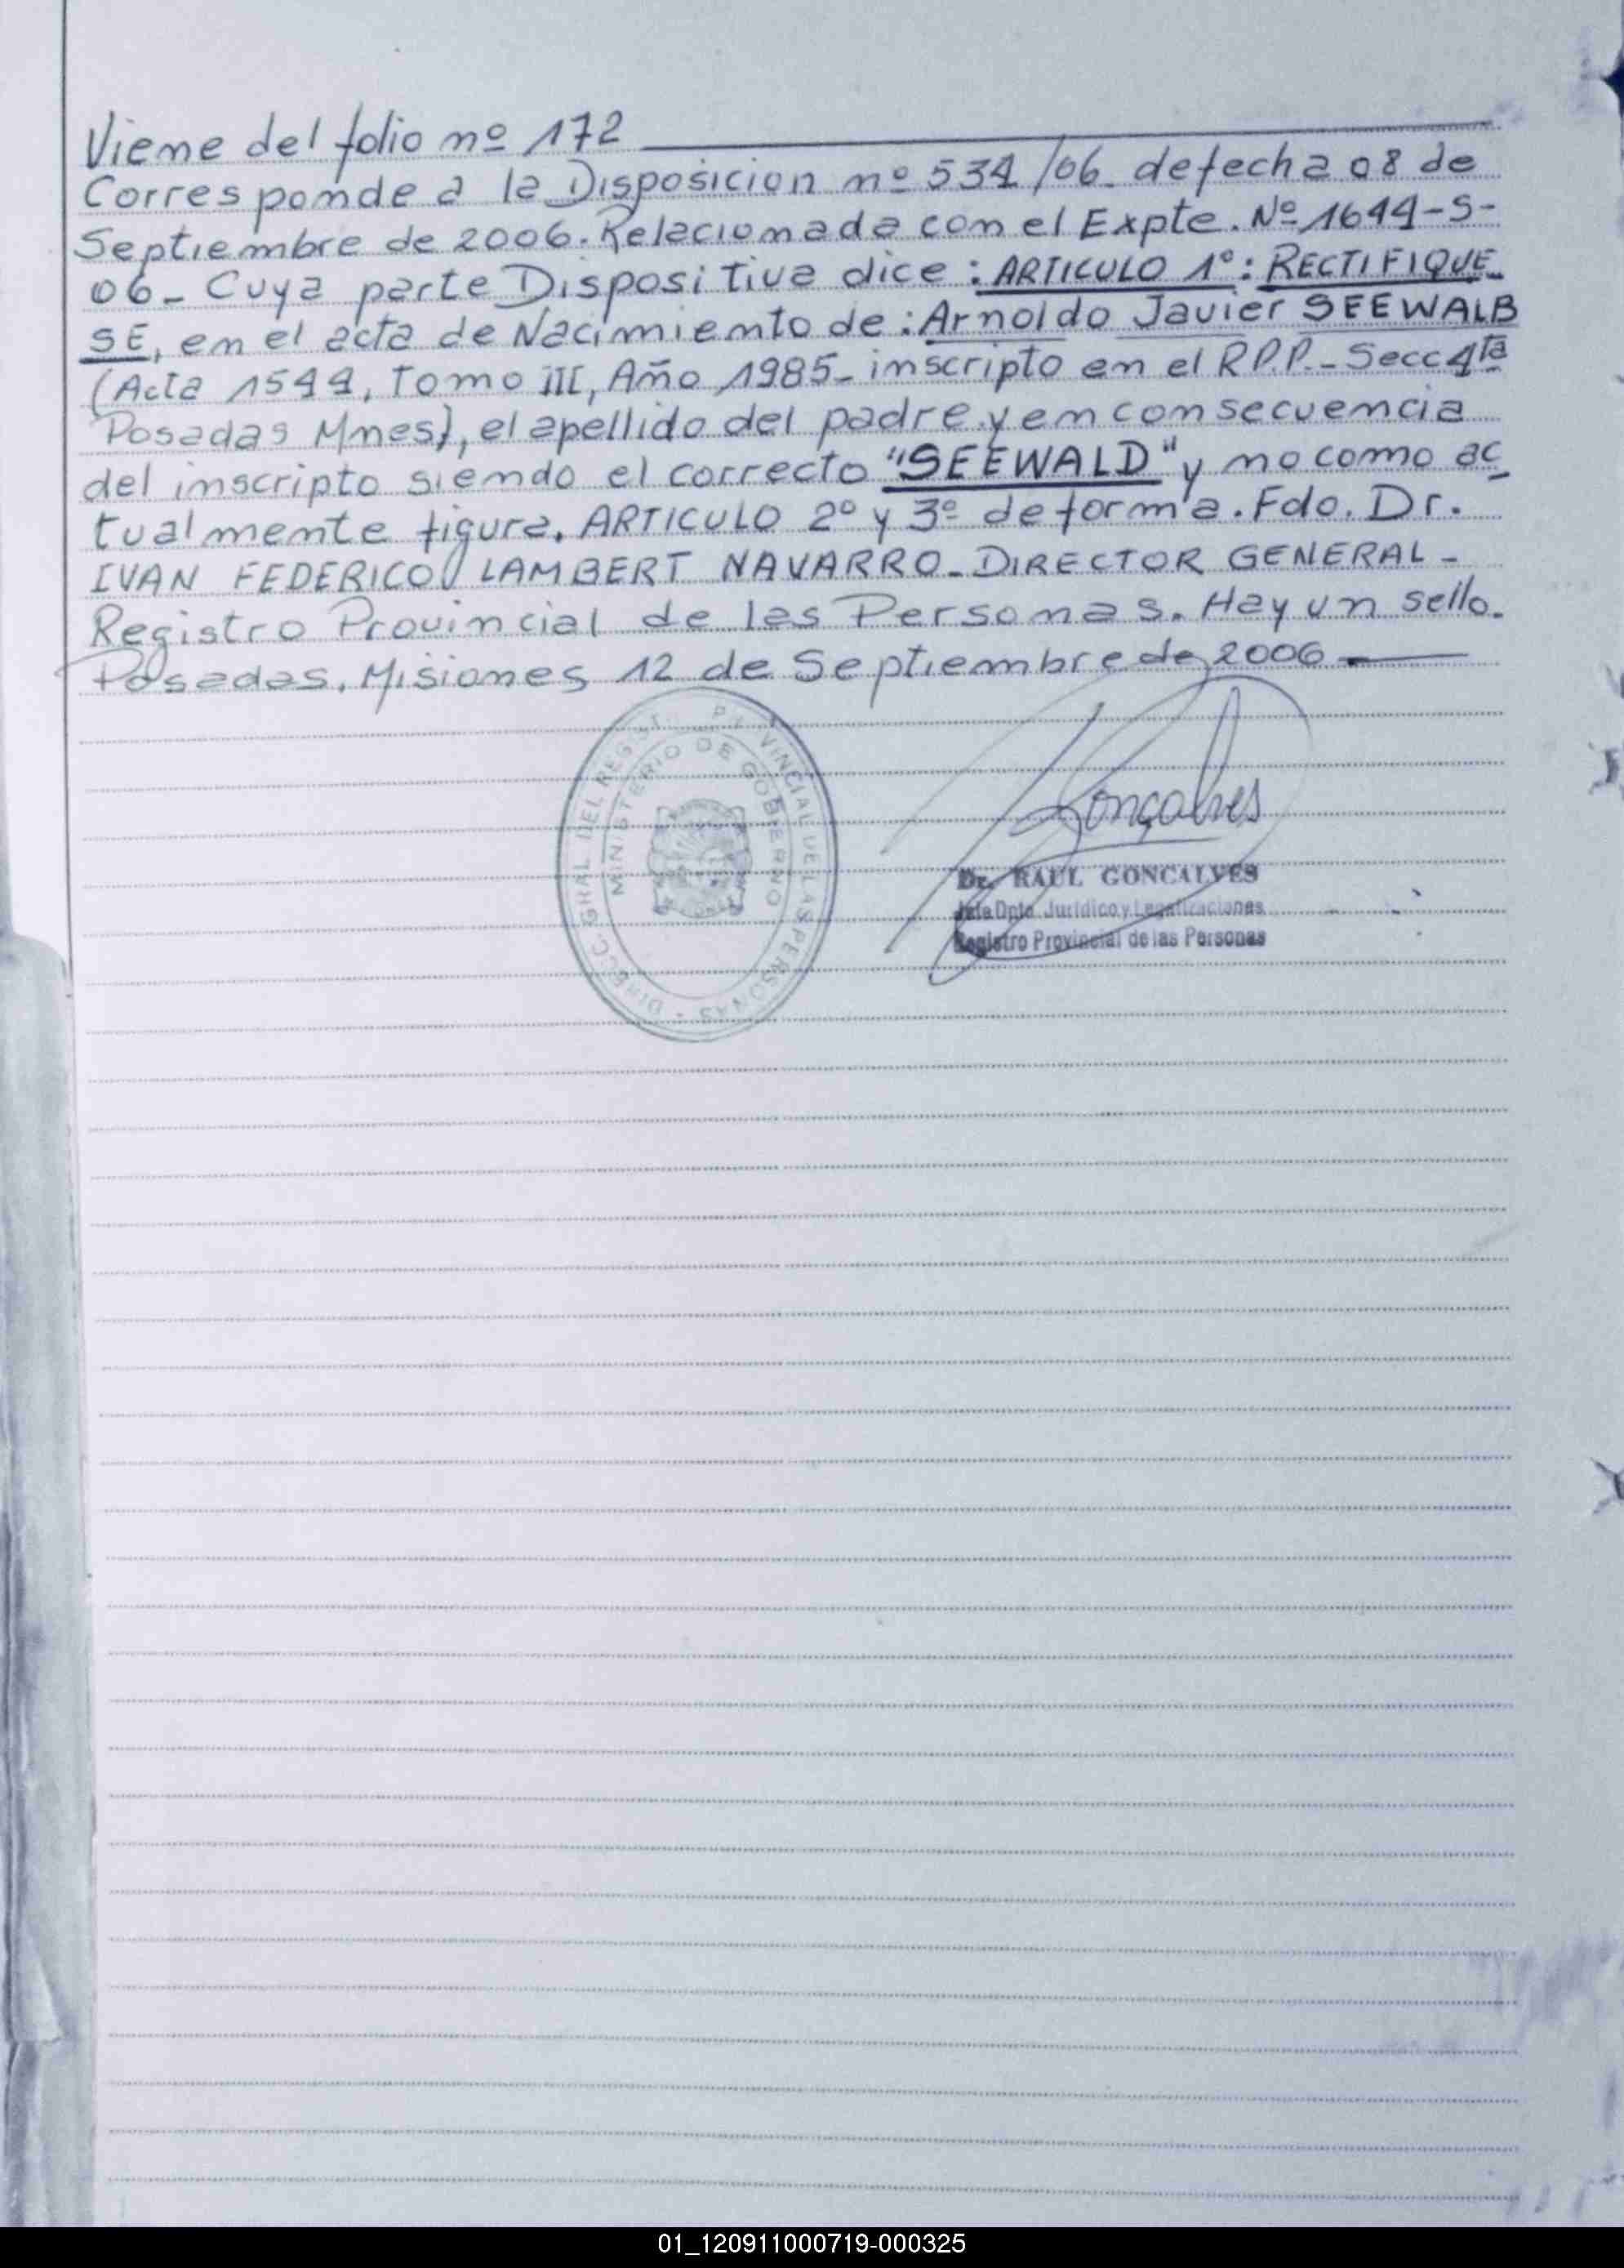 Viene del folio nº 172
Corresponde a la Disposicion nº 534/06 de fecha 08 de
Septiembre de 2006. Relacionada con el Expte. Nº 1644-S-
06- Cuya parte Dispositiva dice: ARTICULO 1º: RECTIFIQUE
SE, en el acta de Nacimiento de: Arnoldo Javier SEEWALB
(Acta 1544, Tomo III, Año 1985- inscripto en el R.P.P.- Secc 4ta
Posadas Mnes), el apellido del padre y en consecuencia
del inscripto siendo el correcto "SEEWALD" y no como ac
tualmente figura. ARTICULO 2º y 3º de forma. Fdo. Dr.
IVAN FEDERICO LAMBERT NAVARRO- DIRECTOR GENERAL-
Registro Provincial de las Personas. Hay un sello.
Posadas, Misiones 12 de Septiembre de 2006
DIRECC. GRAL. DEL REGIST. PROVINCIAL DE LAS PERSONAS
MINISTERIO DE GOBIERNO
Gonçalves
Dr. RAUL GONCALVES
Jefe Dpto. Jurídico y Legalizaciones
Registro Provincial de las Personas
01_120911000719-000325